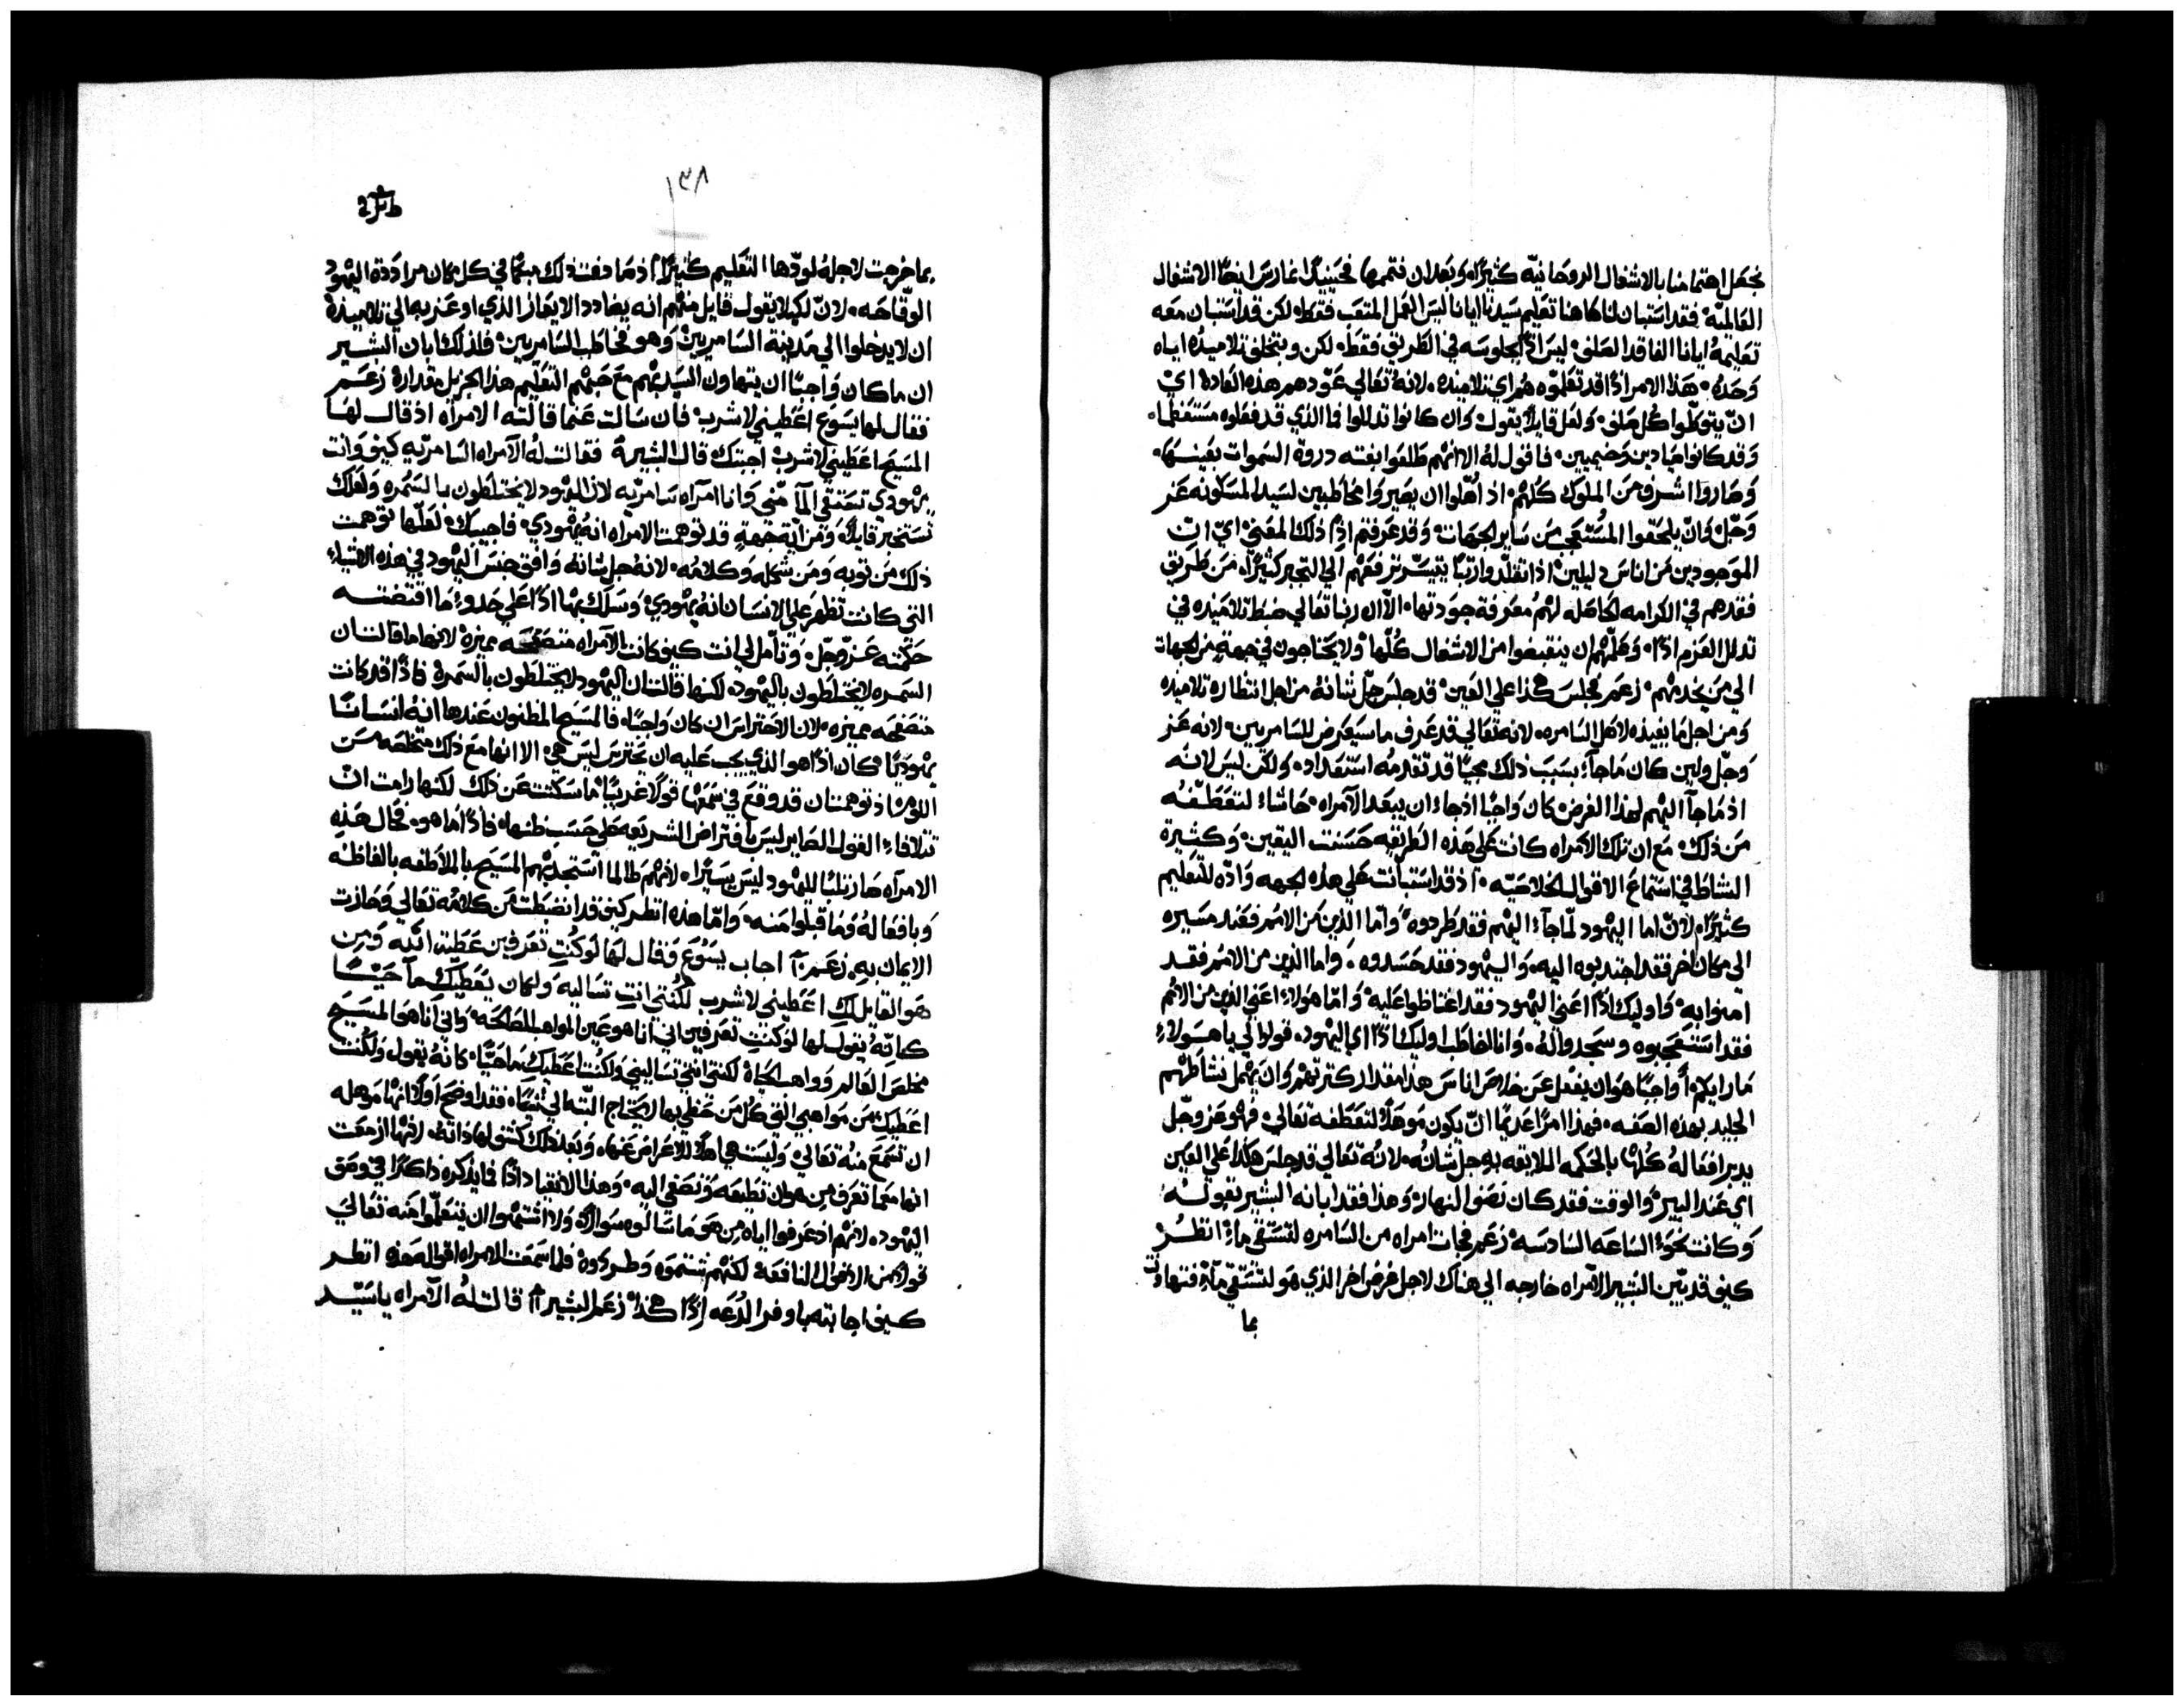 نجعل اهتمامنا بالاشغال الروحانيه كثيرًا، وبعد ان نتممها فحينيذٍ نمارس ايضًا الاشغال
العالميّة، فقد استبان لنا هاهنا تعليم سيدنا ايانا ليس العمل المتعب فقط، لكن قد استبان معه
تعليمهُ ايانا الفاقد العلف، ليس اذًا لجلوسه في الطريق فقط، لكن وبتخلف تلاميذه اياه
وحدهُ، هذا الامر اذًا قد تعلموه هم اي تلاميذه، لانهُ تعالي عوّدهم هذه العادة اي
انّ يتوطّوا كل صلف، ولعل قايلًا يقول، وان كانوا تدللوا فما الذي قد فعلوه مستعظمًا،
وقد كانوا صيادين وخيميين، فاقول لهُ الا انهم طلعوا بغته دروة السموات بعينها،
وصاروا اشرف من الملوك كلهم، اذ اُهّلوا ان يصيروا مخاطبين لسيد المسكونه عز
وجلّ، وان يلحقوا المُستعجب من ساير الجهات، وقد عرفتم اذًا ذلك المعني، ايّ انّ
الموجودين من اناس دليلين، اذا تقلّدوا رتبًا يتيسّر ترفعهم الي التجبر كثيرًا، من طريق
فقدهم في الكرامه الحاصله لهم معرفة جودتها، الّا ان ربنا تعالي ضبط تلاميذه في
تدلل العزم اذًا، وعلّمهم ان ينقبضوا من الاشغال كلّها، ولا يحتاجون في جهةٍ من الجهات
الي من يخدمهم، زعم فجلس هكذا علي العين، قد جلس جلّ شانهُ من اجل انتظاره تلاميذه
ومن اجل ما يفيده لاهل السامره، لانه تعالي قد عرف ما سيعرض للسامريين، لانه عز
وجلّ ولين كان ما جآء بسبب ذلك مجيًا قد تقدمهُ استعداد، ولكن ليس لانه
اذ ما جآ اليهم لهذا الغرض كان واجبًا اذ جاء ان يبعد الآمراه، حاشاءً لتعطّفه
من ذلك، مع ان تلك الامراه كانت علي هذه الطريقه حسنت اليقين، وكثيرة
النشاط في استماع الاقوال الخلاصيّه، اذ قد استبانت علي هذه الجهه وادّه للتعليم
كثيرًا، لانّ اما اليهود لمّا جآء اليهم فقد طردوه، وامّا الذين من الامم فعند مسيره
الي مكان اخر فقد اجتدبوه اليه، واليهود فقد حسدوه، واما الذين من الامم فقد
امنوا به، واوليك اذًا اعني اليهود فقد اغتاظوا عليه، وامّا هولاءِ اعني الذين من الامم
فقد استعجبوه وسجدوا لهُ، وانا اخاطب اوليك اذًا اي اليهود، قولوا لي يا هولاءِ
ما رايكم، أواجبًا هو ان يغفل عن خلاص اناس هذا مقدار كترتهم، وان يهمل نشاطهم
الجليد بهده الصفه، فهذا امرًا عديمًا انّ يكون موهلًا لتعطفه تعالي، فهو عز وجّل
يدبر افعالهُ كلّها بالحكمه الملايقه به جل شانُه، لانهُ تعالي قد جلس هكذا علي العين
اي عند البير، والوقت فقد كان نصف النهار، وهذا فقد ابانه البشير بقوله
وكانت نحو الساعه السادسه، زعم فجات امراه من السامره لتستقي ماءً، انظرُ
كيف قد بيّن البشير الآمراه خارجه الي هناك لاجل غرض اخر الذي هو لتستقي مآءً، فتهاونت
بما
١٣٨
بما خرجت لاجلهُ لودّها التعليم كثيرًا، اذ ما دفعت ذلك مبتّا في كل مكان مرادّدة اليهود
الوقّاحه، لانّ لكيلا يقول قايل منهم انه يضادد الايعاز الذي اوعز به الي تلاميذه
ان لا يدخلوا الي مدينة السامريين، وهو فخاطب السامريين، فلذلك ابان البشير
ان ما كان واجبًا ان يتهاون السيد بهم مع حبّهم التعليم هذا الجزيل مقداره، زعم
فقال لها يسوع اعطيني لاشرب، فان سالت عنما قالته الامرآه اذ قال لها
المسيح اعطيني لاشرب، اجبتك قال البشير، فقالت لهُ الآمراه السامريّه كيف وانت
يهودي تستقي المآ منّي، وانا امرآه سامريّه، لان اليهود لا يختلطون بالسمره، ولعلك
تستخبر قايلًا، ومن ايّة جهةٍ قد توهمت الامراه انهُ يهودي، فاجيبك، لعلّها توهمت
ذلك من ثوبه ومن شكله وكلامُه، لانهُ جل شانهُ وافق جنس اليهود في هذه الاشياءِ
التي كانت تظهر علي الانسان انهُ يهودي، وسلك بها اذًا علي حدوِ ما اقتضته
حكمته عزّ وجّل، وتامل لي انت كيف كانت الآمراه متصفحه مميزه، لانها ما قالت ان
السمره لا يختلطون باليهود، لكنها قالت ان اليهود لا يختلطون بالسمره، فاذًا قد كانت
متصفحه مميزه، لان الاحتراس ان كان واجبًا، فالمسيح المظنون عندها انهُ انسانًا
يهوديًا، كان اذًا هو الذي يجب عليه ان يحترس ليس هي، الا انها مع ذلك متخلصه من
اللوم، اذ توهمت ان قد وقع في سمعها قولًا غريبًا، ما سكتت عن ذلك، لكنها رامت انّ
تتلافاءِ القول الصاير ليس بافتراض الشريعه علي حسب ظنها، فاذًا ما هو، فحال هذه
الامرآه صار تلبًا لليهود ليس يسيرًا، لانهم طالما استجدبهم المسيح بالملاطفه بالفاظه
وبافعالهُ وما قبلوا منه، وامّا هذه انظر كيف قد انضبطت من كلامُه تعالي وحازت
الايمان به، زعم آ اجاب يسوع وقال لها لو كنتِ تعرفين عطية الله ومن
هو القايل لكِ اعطيني لاشرب لكُنتي انتِ تساليه، ولكان يعطيكِ مآ حيًا
كانّهُ يقول لها لو كنتِ تعرفين اني انا هو عين المواهب الصالحه، واني انا هو المسيح
مخلص العالم وواهب الحياة لكنتي انتي تسالينني ولكُنت اعطيك مآ حيًا، كانّهُ يقول ولكُنت
اعطيكِ من مواهبي التي كل من حظي بها لا يحتاج البتّه الي شياء، فقد اوضح اولًا انها موهله
ان تسمع منهُ تعالي، وليست هي اهلًا للاعراض عنها، وبعد ذلك كشف لها ذاتهُ، لانها ازمعت
انها معما تعرف من هو ان تطيعه وتصغي اليه، وهذا الانقياد اذًا فما يذكره ذاكرًا في وصف
اليهود، لانهم اذ عرفوا اياه من هو ما سالوه سوالًا، ولا اشتهوا ان يتعلّموا منه تعالي
قولًا من الاقوال النافعه، لكنهم شتموه وطردوه، فلما سمعت الامراه اقواله هذه، انظر
كيف اجابته باوفر الدّعه اذًا هكذا، زعم البشير آ قالت لهُ الآمراه يا سيّد